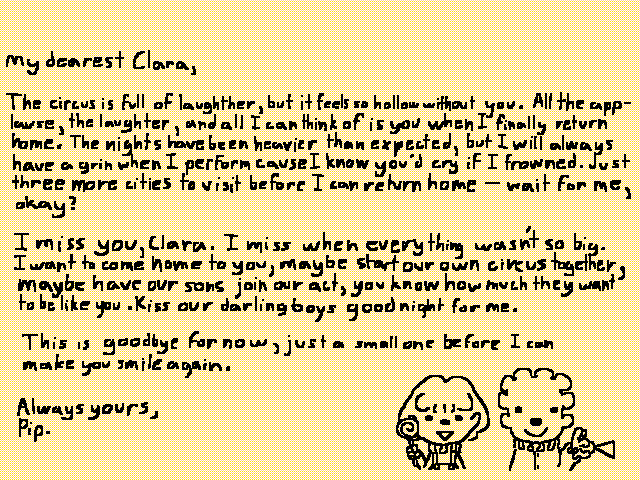 My dearest Clara,
The circus is full of laughther, but it feels so hollow without you. All the app-
lause, the laughter, and all I can think of is you when I finally return
home. The nights have been heavier than expected, but I will always
have a grin when I perform cause I know you'd cry if I frowned. Just
three more cities to visit before I can return home — wait for me,
okay?
I miss you, Clara. I miss when everything wasn't so big.
I want to come home to you, maybe start our own circus together,
maybe have our sons join our act, you know how much they want
to be like you. Kiss our darling boys goodnight for me.
This is goodbye for now, just a small one before I can
make you smile again.
Always yours,
Pip.